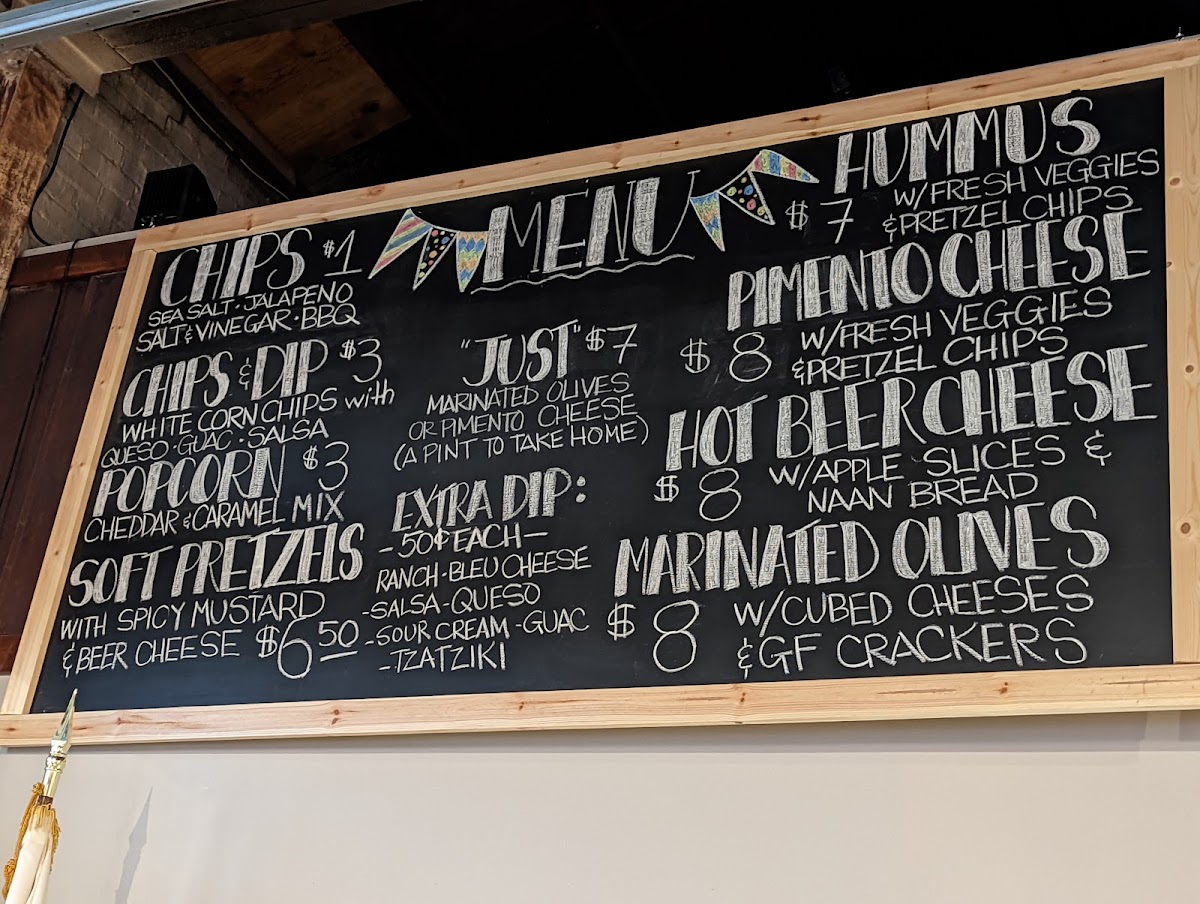 MENU
CHIPS $1
SEA SALT · JALAPENO
SALT & VINEGAR · BBQ
CHIPS & DIP $3
WHITE CORN CHIPS with
QUESO · GUAC · SALSA
POPCORN $3
CHEDDAR & CARAMEL MIX
SOFT PRETZELS
WITH SPICY MUSTARD
& BEER CHEESE $6.50
"JUST" $7
MARINATED OLIVES
OR PIMENTO CHEESE
(A PINT TO TAKE HOME)
EXTRA DIP:
- 50¢ EACH -
RANCH · BLEU CHEESE
- SALSA - QUESO
- SOUR CREAM - GUAC
- TZATZIKI
HUMMUS
$7 W/ FRESH VEGGIES
& PRETZEL CHIPS
PIMENTO CHEESE
$8 W/ FRESH VEGGIES
& PRETZEL CHIPS
HOT BEER CHEESE
$8 W/ APPLE SLICES &
NAAN BREAD
MARINATED OLIVES
$8 W/ CUBED CHEESES
& GF CRACKERS